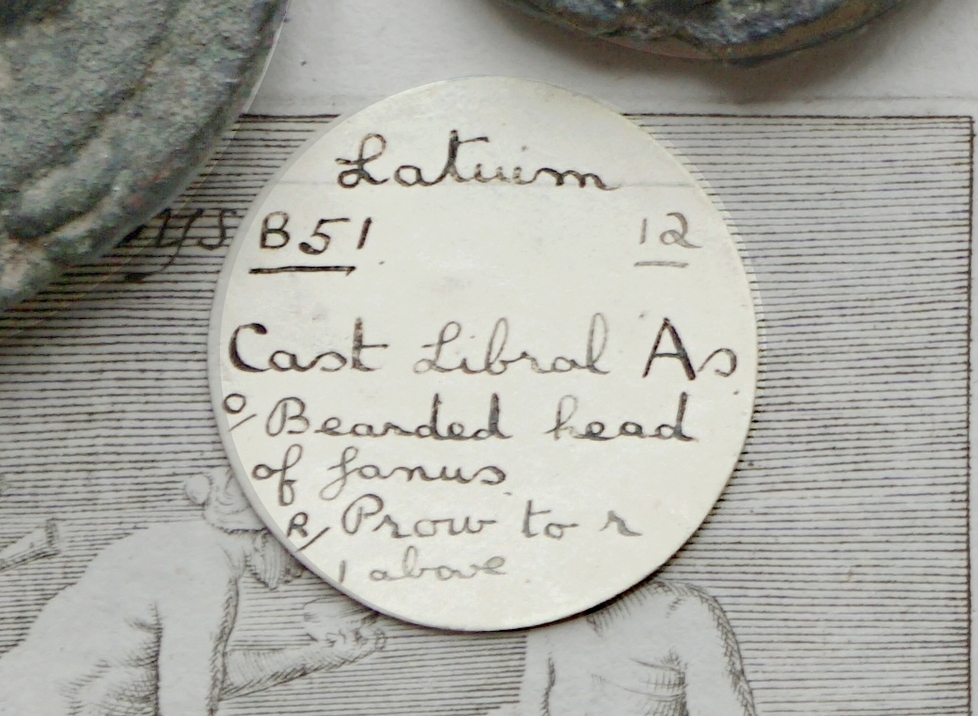 Latuim
B51 12
Cast Libral As
O/ Bearded head
of Janus
R/ Prow to r
1 above